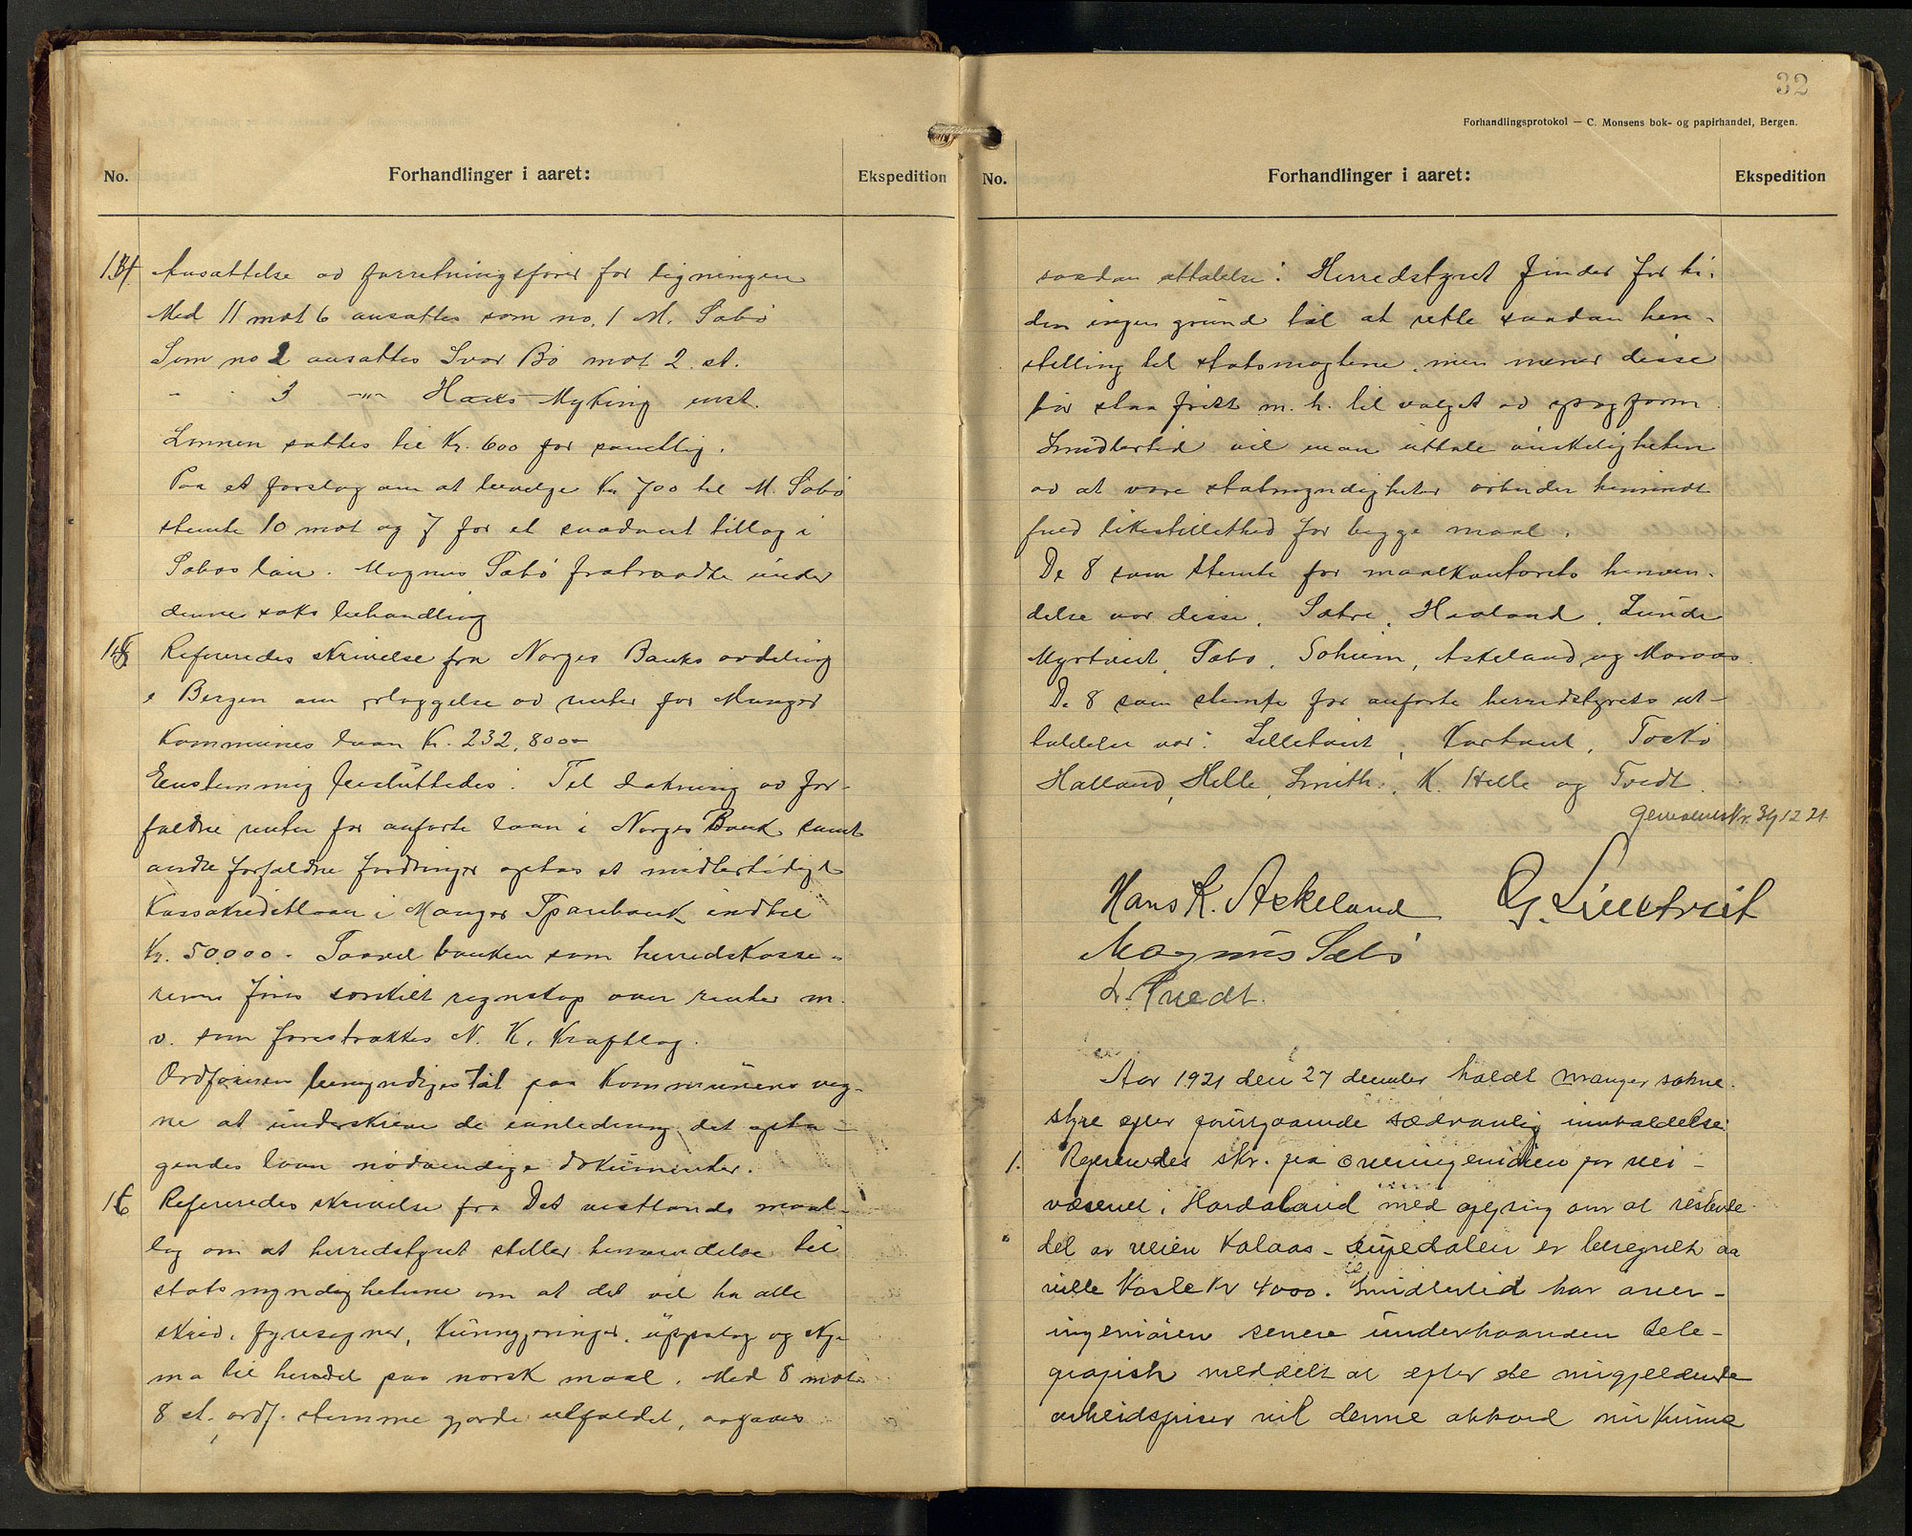 No. Forhandlinger i aaret: Ekspedition
14 Ansættelse av forretningsfører for ligningen
Med 11 mot 6 ansattes som no. 1 M. Sæbø
Som no 2 ansattes Ivar Bø mot 2 st.
" " 3 -"- Hans Myking enst.
Lønnen sattes til Kr. 600 for samtlig.
Paa et forslag om at bevilge Kr 700 til M. Sæbø
stemte 10 mot og 7 for et saadant tillæg i
Sæbøs løn. Magnus Sæbø fratraadte under
denne saks behandling
15 Refereredes skrivelse fra Norges Banks avdeling
i Bergen om erlæggelse av renter for Manger
Kommunes laan Kr. 232,800-
Enstemmig besluttedes: Til dækning av for-
faldne renter for anførte laan i Norges Bank samt
andre forfaldne fordringer optas et midlertidigt
Kassakreditlaan i Manger Sparebank indtil
Kr. 50.000. Saavel banken som herredskasse-
reren fører særskilt regnskap over renter m.
v. som forestrækkes N. K. Kraftlag.
Ordføreren bemyndiges til paa Kommunens veg-
ne at underskrive de i anledning det opta-
gendes laan nødvendige dokumenter.
16 Refereredes skrivelse fra Det vestlandske maal-
lag om at herredstyret stiller henvendelse til
statsmyndigheterne om at det vil ha alle
skriv, fyresegner, kunngjeringer, uppslag og skje-
ma til heradet paa norsk maal. Med 8 mot
8 st. ordf. stemme gjorde utfaldet, avgaves
32
Forhandlingsprotokol — C. Monsens bok- og papirhandel, Bergen.
No. Forhandlinger i aaret: Ekspedition
saadan uttalelse: Herredstyret finder for ti-
den ingen grund til at rette saadan hen-
stilling til statsmagtene, men mener disse
bør staa frit m. h. til valget av sprogform
Imidlertid vil man uttale ønskeligheten
av at vore statsmyndigheter arbeider henimot
fuld likestillethed for begge maal.
De 8 som stemte for maalkontorets henven-
delse var disse, Sætre, Haaland, Lunde
Myrtveit, Sæbø, Solheim, Askeland og Maraas
De 8 som stemte for anførte herredstyrets ut-
taldelse var: Lilletveit, Kartveit, Toskø
Halland, Helle, Smith, K. Helle og Tvedt.
Genpart 29/12 21
Hans K. Askeland G. Lilletveit
Magnus Sæbø
L. Tvedt.
Aar 1921 den 27 december holdt Manger sokne-
styre efter forutgaaende sædvanlig innkaldelse
1. Refereredes skr. fra overingeniøren for vei-
væsenet i Hordaland med oplysning om at restende
del av veien Kalaas - Dupedalen er beregnet aa
ville koste Kr 4000. Imidlertid har over-
ingeniøren senere underhaanden tele-
grafisk meddelt at efter de nugjeldende
arbeidspriser vil denne akkord nu kunne